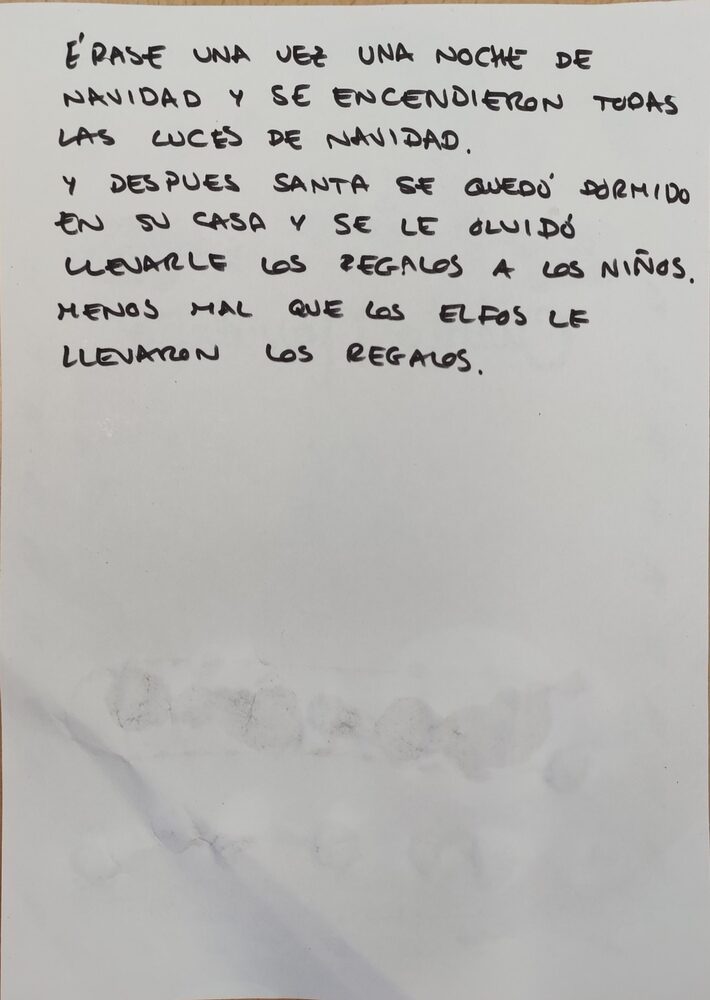 ÉRASE UNA VEZ UNA NOCHE DE
NAVIDAD Y SE ENCENDIERON TODAS
LAS LUCES DE NAVIDAD.
Y DESPUES SANTA SE QUEDÓ DORMIDO
EN SU CASA Y SE LE OLVIDÓ
LLEVARLE LOS REGALOS A LOS NIÑOS.
MENOS MAL QUE LOS ELFOS LE
LLEVARON LOS REGALOS.